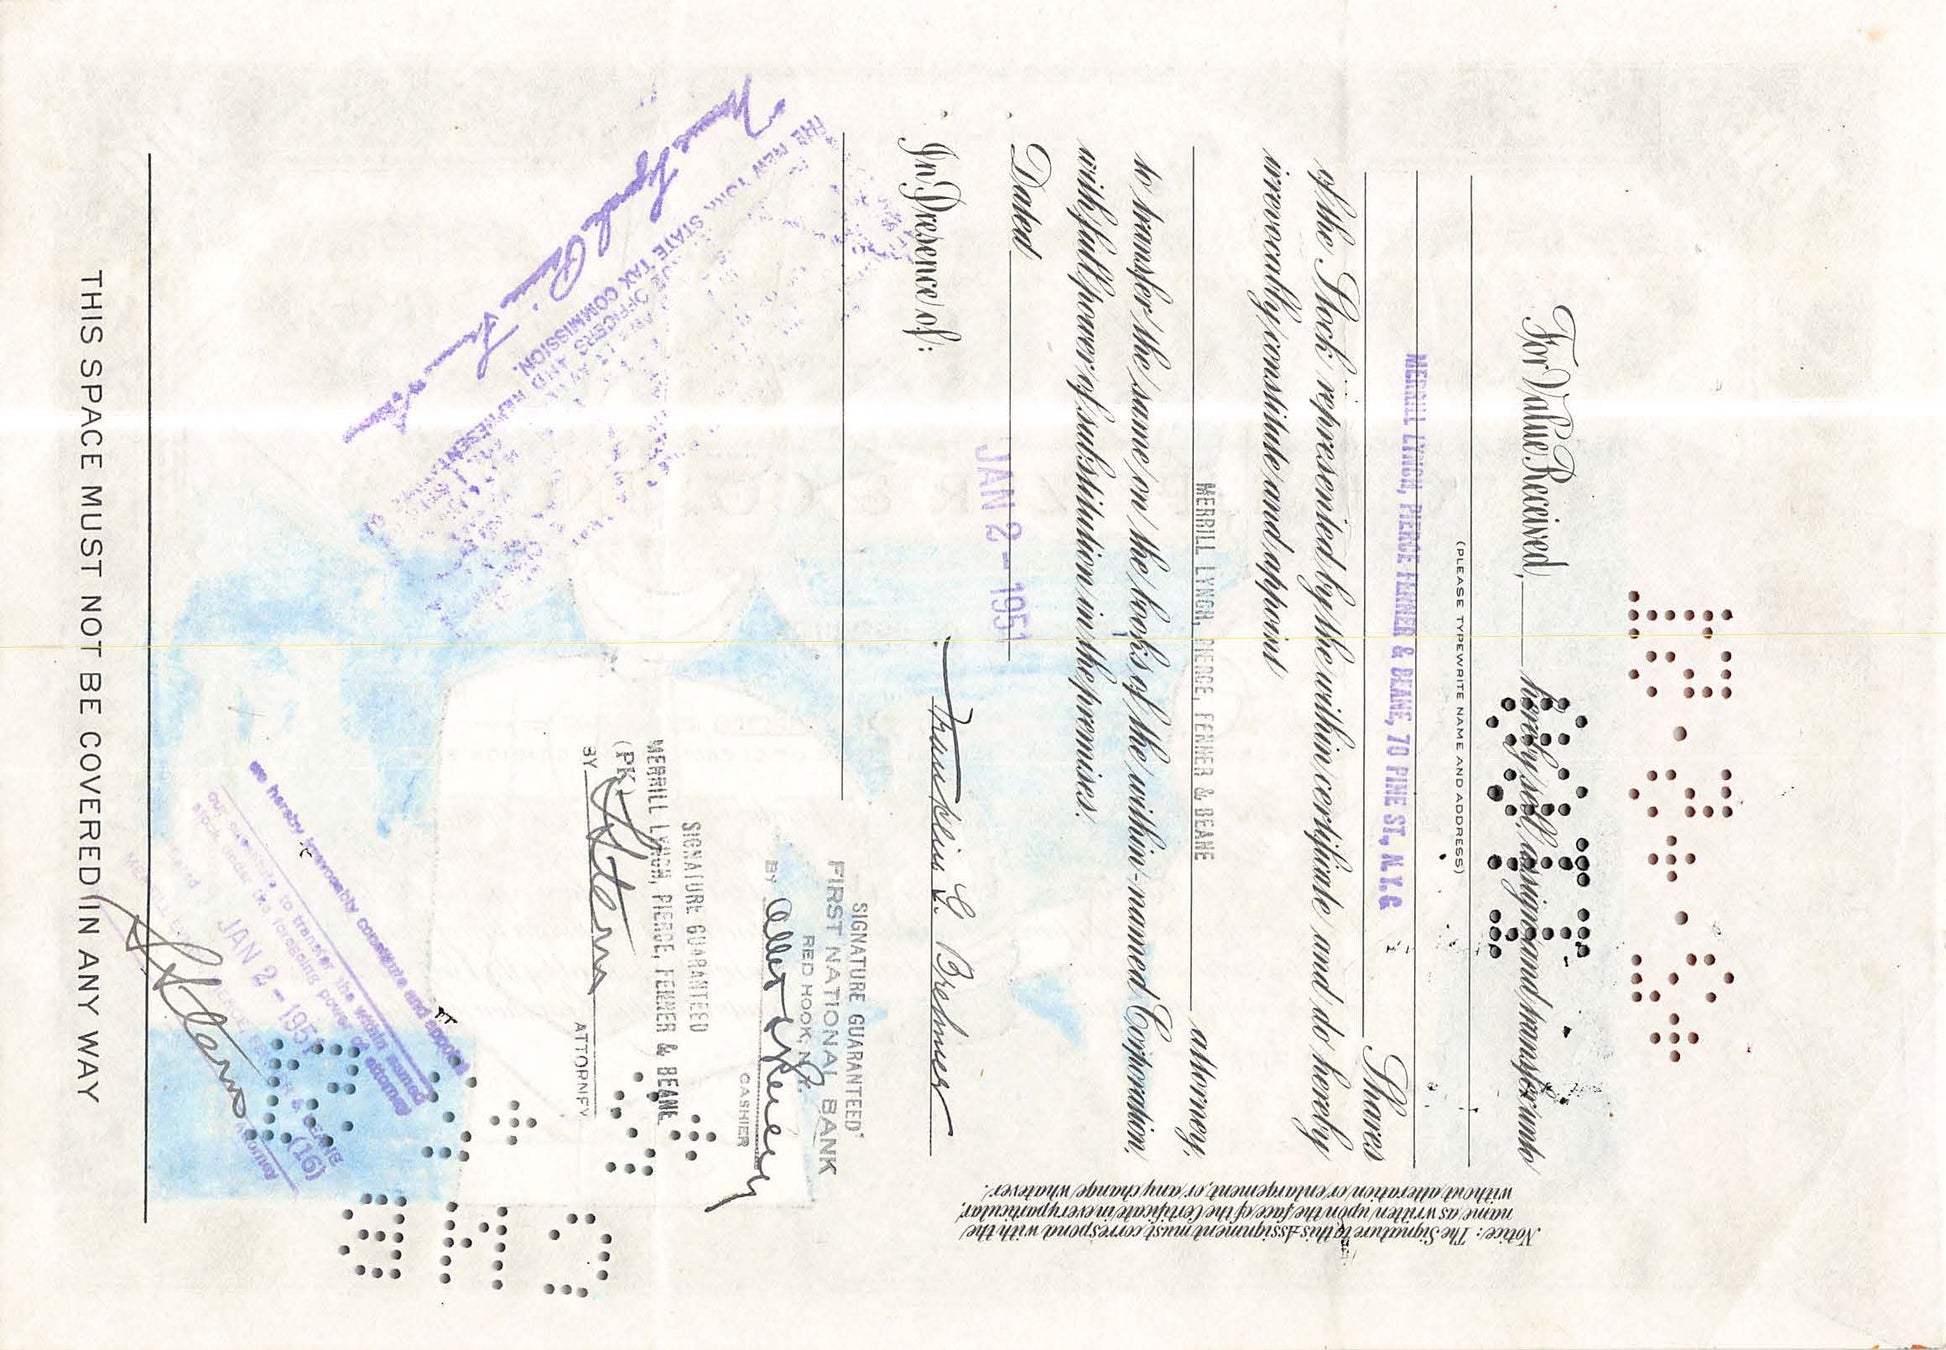 For Value Received, hereby sell, assign and transfer unto
(PLEASE TYPEWRITE NAME AND ADDRESS)
MERRILL LYNCH, PIERCE FENNER & BEANE, 70 PINE ST., N.Y.C
Shares
of the Stock represented by the within certificate and do hereby
irrevocably constitute and appoint
MERRILL LYNCH, PIERCE, FENNER & BEANE
attorney,
to transfer the same on the books of the within-named Corporation,
with full power of substitution in the premises.
Dated JAN 2 - 1951
In Presence of:
Franklin G. Bremer
SIGNATURE GUARANTEED
FIRST NATIONAL BANK
RED HOOK, N.Y.
BY
CASHIER
SIGNATURE GUARANTEED
MERRILL LYNCH, PIERCE, FENNER & BEANE
(PK)
BY Stern
ATTORNEY
THE NEW YORK STATE TAX COMMISSION.
OFFICERS AND
do hereby irrevocably constitute and appoint
to transfer the within named
stock under the foregoing power of attorney
JAN 2 - 1951
(16)
Attorney
Stern
THIS SPACE MUST NOT BE COVERED IN ANY WAY
Notice: The Signature to this Assignment must correspond with the
name as written upon the face of the Certificate in every particular,
without alteration or enlargement, or any change whatever.